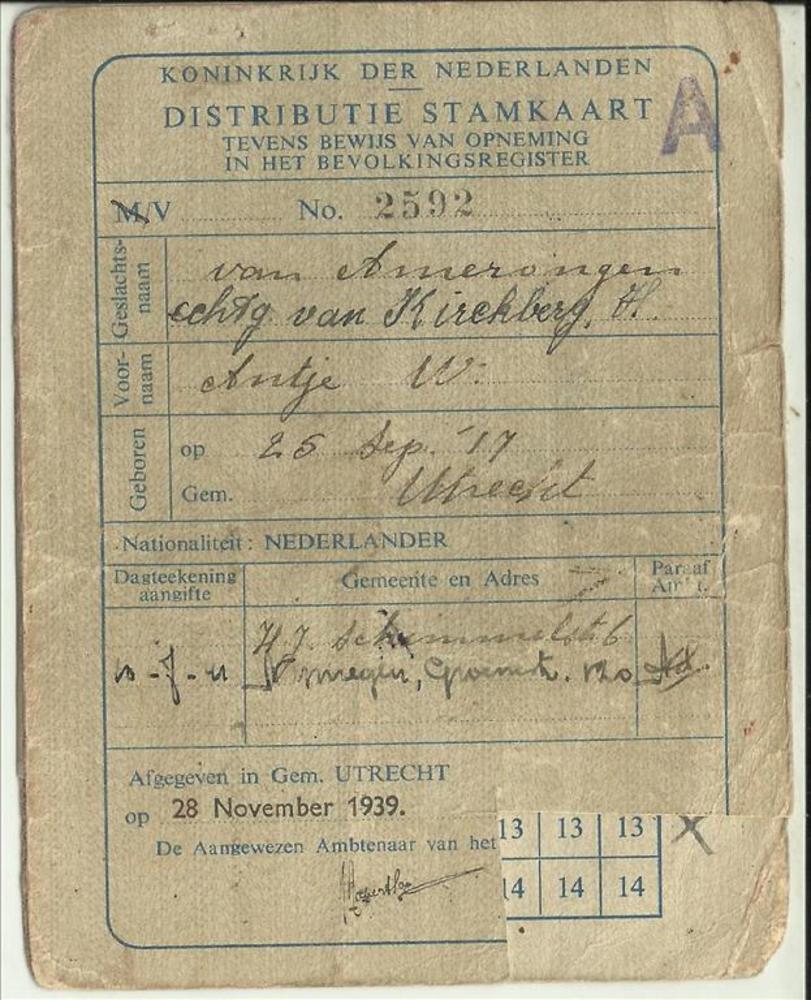 KONINKRIJK DER NEDERLANDEN
DISTRIBUTIE STAMKAART
A
TEVENS BEWIJS VAN OPNEMING
IN HET BEVOLKINGSREGISTER
M/V No. 2592
Geslachts-
naam
van Amerongen
echtg van Kirchberg, H.
Voor-
naam
Antje W.
Geboren
op 25 Sep. '17
Gem. Utrecht
Nationaliteit: NEDERLANDER
Dagteekening
aangifte
Gemeente en Adres
Paraaf
H.J. Schimmelstr 6
Nijmegen, 120
Afgegeven in Gem. UTRECHT
op 28 November 1939.
De Aangewezen Ambtenaar van het
13 13 13 X
14 14 14